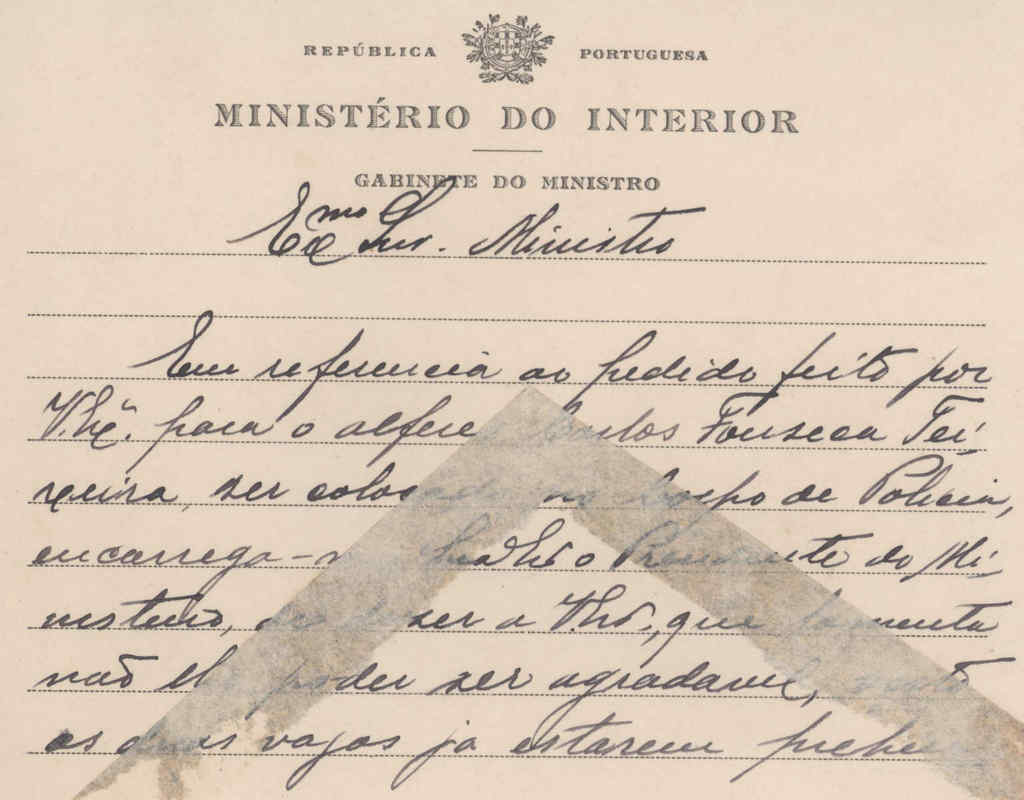 REPÚBLICA PORTUGUESA
MINISTÉRIO DO INTERIOR
GABINETE DO MINISTRO
Exmo Snr. Ministro
Em referencia ao pedido feito por
V. Exª. para o alferes Carlos Fonseca Tei-
xeira, ser colocado no Corpo de Policia,
encarrega-me Sua Exª o Presidente do Mi-
nisterio, de dizer a V. Exª, que lamenta
não lhe poder ser agradavel, visto
as duas vagas já estarem